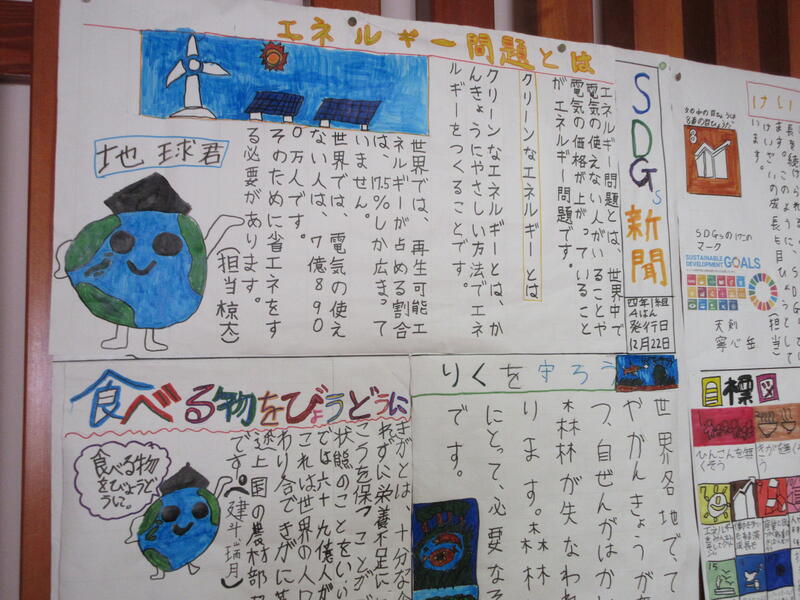 エネルギー問題とは
SDGs新聞
四年1組
4はん
発行日
12月22日
エネルギー問題とは、世界中で
電気の使えない人がいることや
電気の価格が上がっていること
がエネルギー問題です。
クリーンなエネルギーとは
クリーンなエネルギーとは、か
んきょうにやさしい方法でエネ
ルギーをつくることです。
世界では、再生可能エ
ネルギーが占める割合
は、17.5%しか広まって
いません。
世界では、電気の使え
ない人は、7億890
0万人です。
そのために省エネをす
る必要があります。
(担当 椋太)
地球君
りくを守ろう
世界各地でて
やかんきょうが
つ、自ぜんがはかい
森林が失なわれ
ります。森林
にとって、必要な
です。
食べる物をびょうどうに
きがとは、十分な食
れずに栄養不足に
こうを保つことが
状態のことをいい
では六十九億人が
これは世界の人口
わり合できがに
途上国の農村部
です。
建斗 瑞月)
食べる物
をびょうど
うに。
けい
8
SDGsの17この
マーク
SUSTAINABLE
DEVELOPMENT GOALS
天剣
寧心 岳
目標図
ひんこんを無
くそう
きがを無く
そう
15